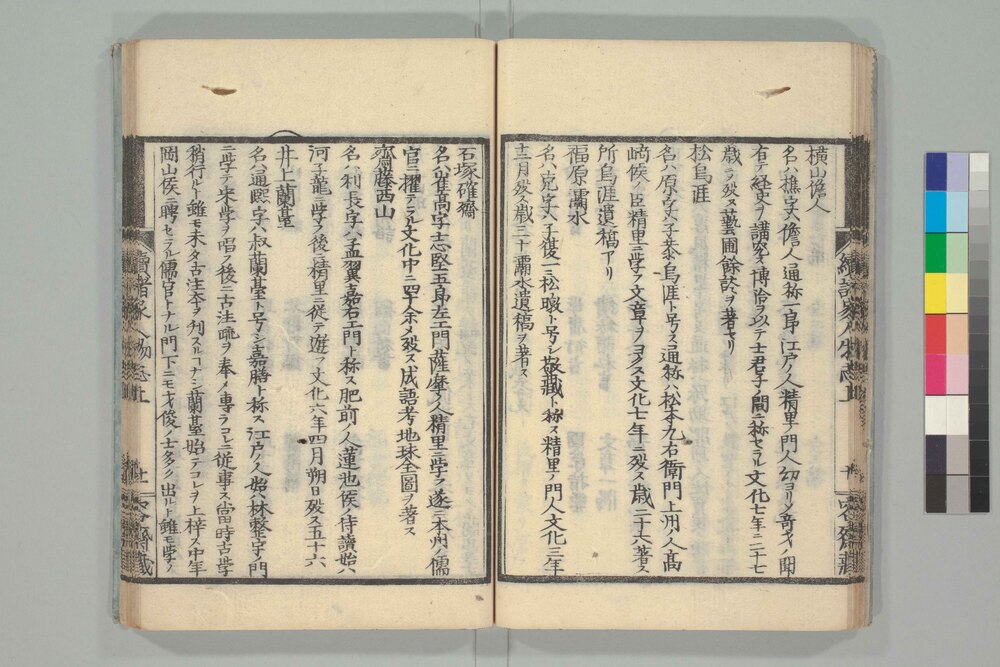 橫山儋人
名ハ樵字ハ儋人通称一郎江戸ノ人精里ノ門人幼ヨリメ奇才ノ聞
有テ経史ヲ講究ネ博洽ヲ以テ士君子ノ間ニ称セラル文化七年二十七
歳ヲ殁ス藝圃餘談ヲ著セリ
松烏涯
名ハ原字ハ子恭烏涯ト号ス通称ハ松本九右衛門上州ノ人高
崎候ノ臣精里ニ学フ文章ヲヨクス文化七年ニ殁ス歳二十六著ス
所烏涯遺稿アリ
福原瀰水
名ハ克字ハ子俊一ニ松瞰ト号シ敬藏ト称ス精里ノ門人文化三年
十二月殁ス歳三十瀰水遺稿ヲ著ス
石塚確齋
名ハ隺髙字ハ志堅五郎左エ門薩摩ノ人精里ニ学フ遂ニ本州ノ儒
官ニ擢テラル文化中ニ四十余メ殁ス成語考地球全圖ヲ著ス
齋藤西山
名ハ利長字ハ孟翼嘉右エ門ト称ス肥前ノ人蓮池候ノ侍讀始ハ
河子龍ニ学フ後ニ精里ニ従テ遊フ文化六年四月朔日殁ス五十六
井上蘭臺
名ハ通熙字ハ叔蘭臺ト号シ嘉膳ト称ス江戸ノ人始ハ林整宇ノ門
ニ学テ宋学ヲ唱フ後ニ古注疏ヲ奉メ専ラコレニ従事ス當時古学
稍行ルト雖モ未タ古注本ヲ刋スルヿナシ蘭臺始テコレヲ上梓ス中年
岡山侯ニ聘セラル儒官トナル門下ニモ才俊ノ士多ク出ルト雖モ学ノ